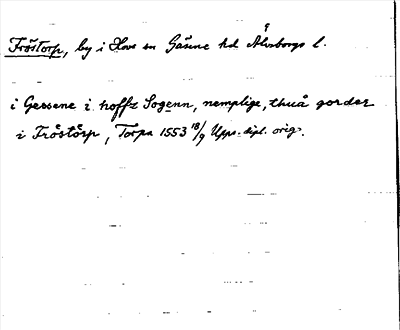 Fröstorp, by i Hovs sn Gäsene hd Älvsborgs l.
i Gessene i hoffz Sogenn, nemplige, thuå gorder
i Fröstörp, Torpa 1553 18/9 Upps. dipl. orig.